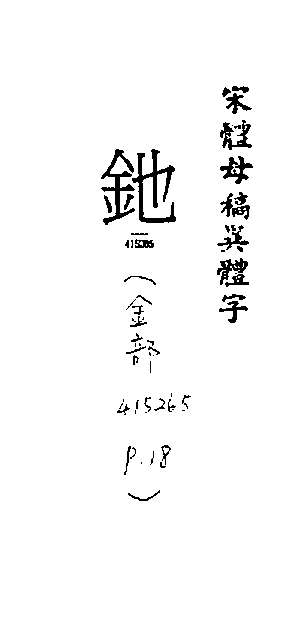 宋體母稿異體字
釶
415265
(金部
415265
P.18
)